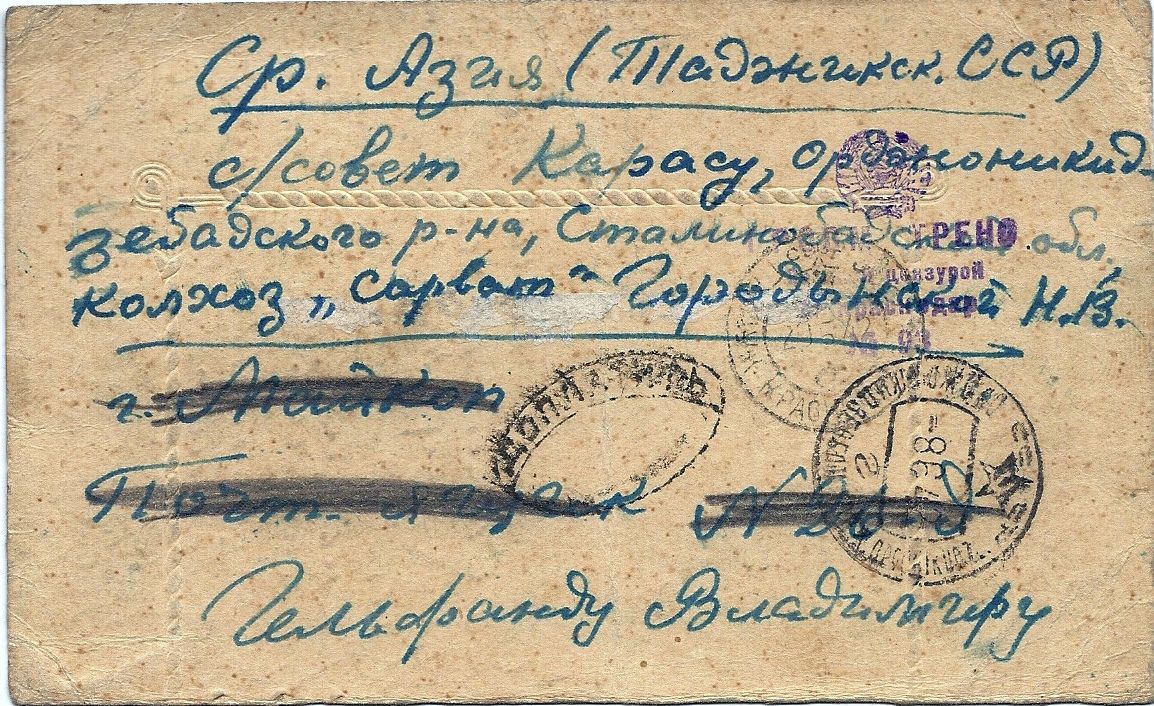 Ср. Азия (Таджикск. ССР)
с/совет Карасу, Орджоникид-
зебадского р-на, Сталинобадской обл.
колхоз „Сарват" Городынской Н.В.
г. Майкоп
Почт. ящик №
Гельфанду Владимиру
РЕНО
цензурой
Краснодар
93
ДОПЛАТИТЬ